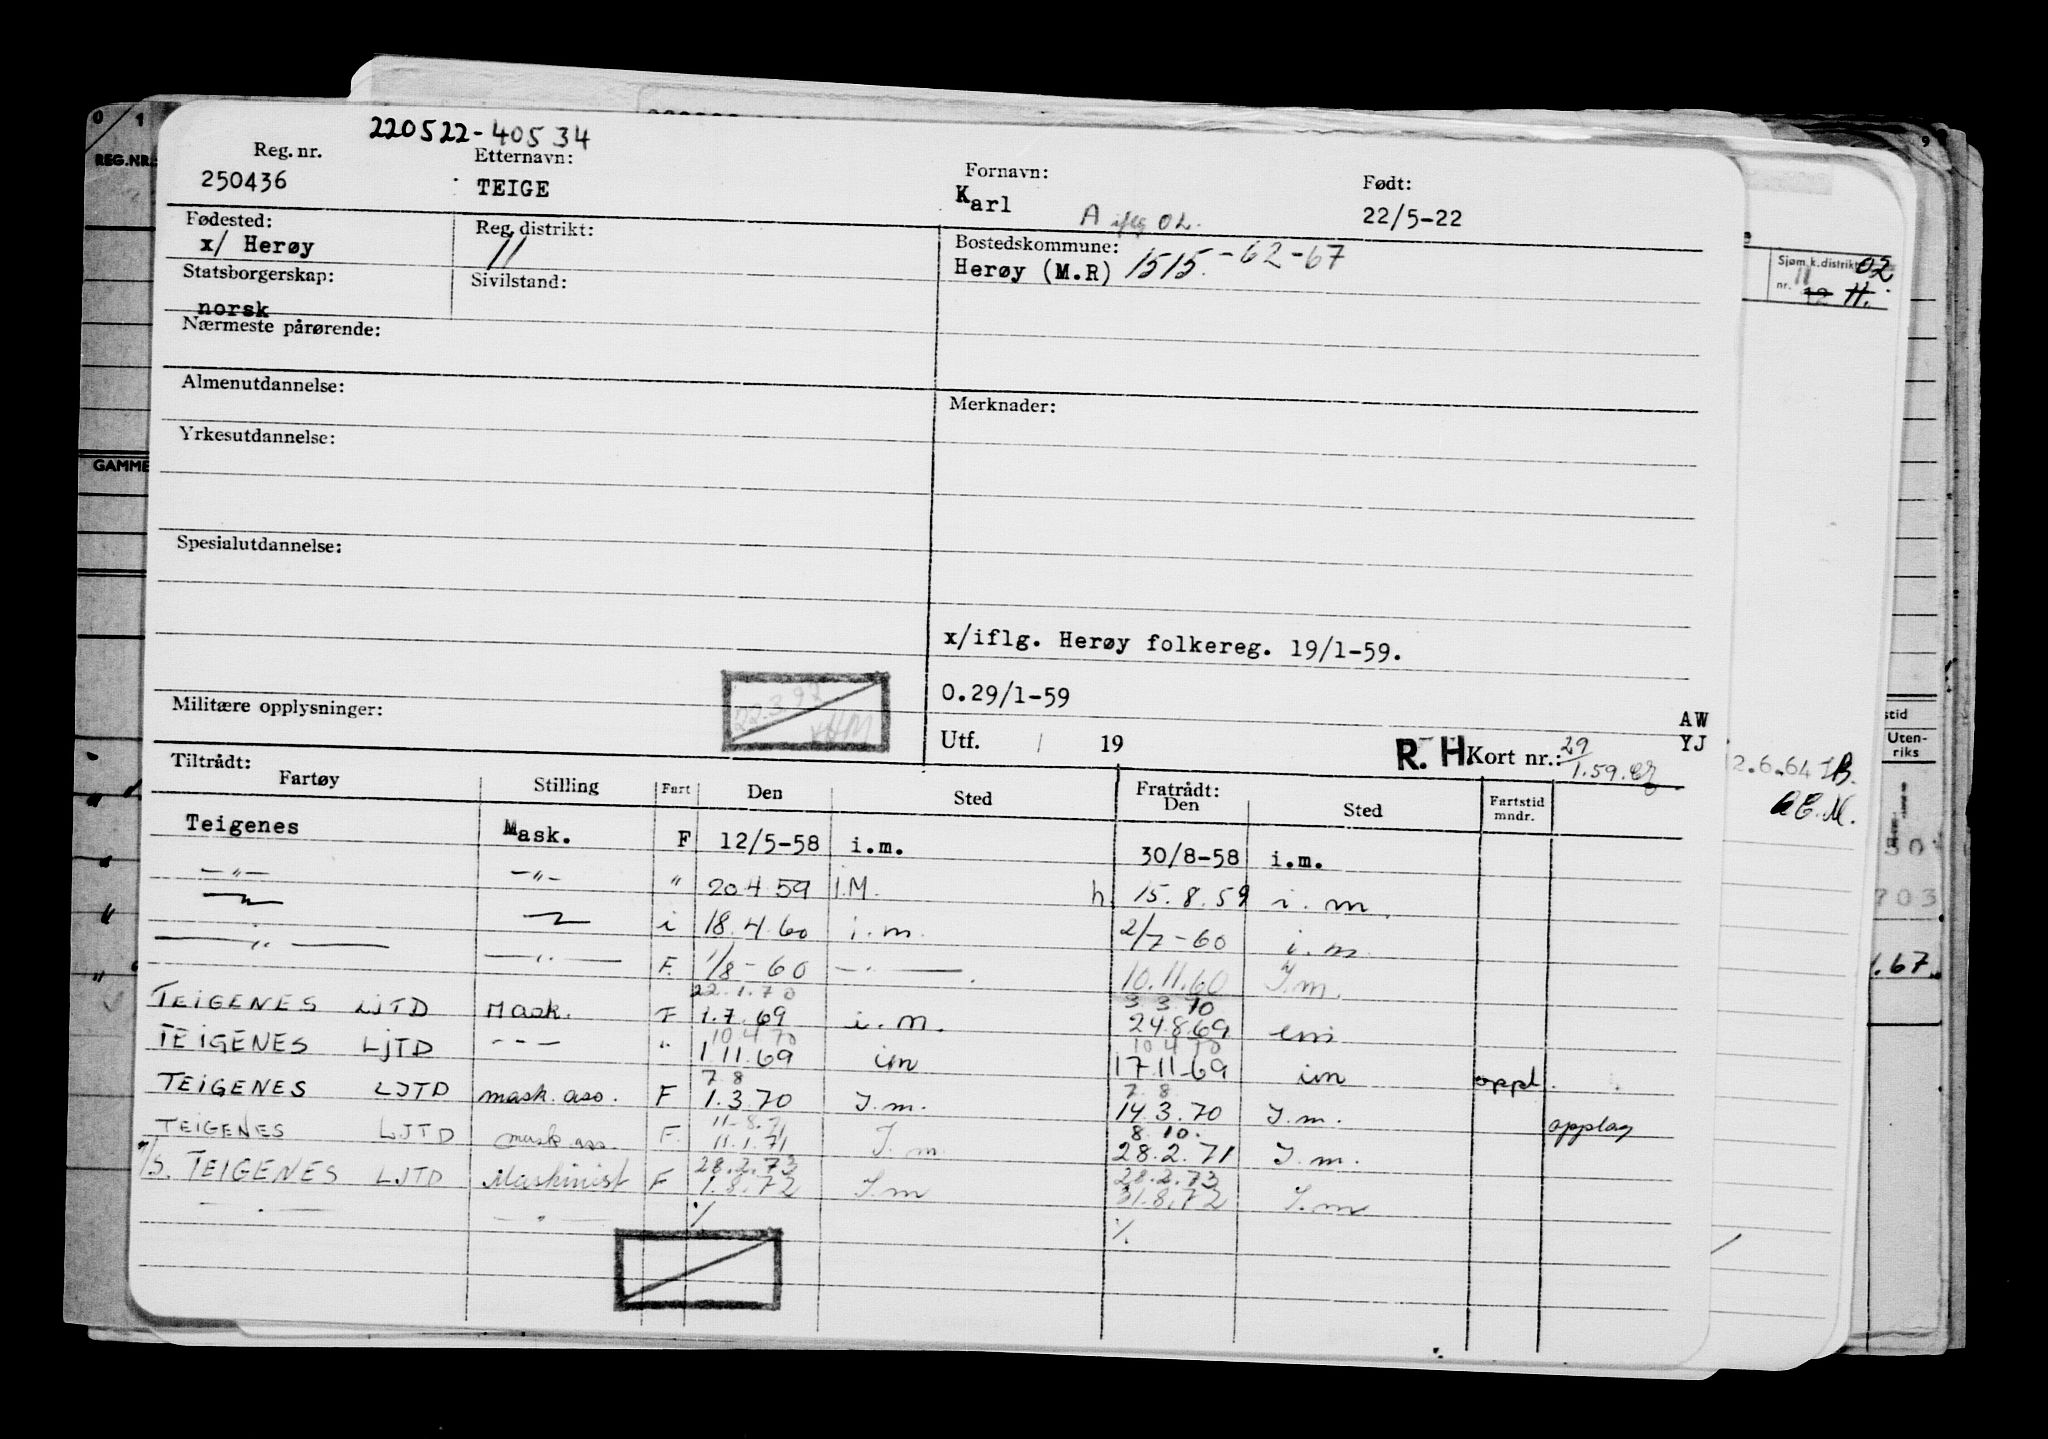 220522-40534
Reg. nr. Etternavn: Fornavn: Født:
250436 TEIGE Karl 22/5-22
A iflg OL.
Fødested: Reg. distrikt: Bostedskommune:
x/ Herøy 11 Herøy (M.R) 1515.-62-67
Statsborgerskap: Sivilstand:
norsk
Nærmeste pårørende:
Almenutdannelse: Merknader:
Yrkesutdannelse:
Spesialutdannelse:
x/iflg. Herøy folkereg. 19/1-59.
22.3.
O.29/1-59
Militære opplysninger: AW
Utf. / 19 R. H. Kort nr.: 29/1.59. YJ
Tiltrådt: Fratrådt:
Fartøy Stilling Fart Den Sted Den Sted Fartstid mndr.
Teigenes Mask. F 12/5-58 i.m. 30/8-58 i.m.
—"— —"— " 20.4.59 I.M. h 15.8.59 i.m.
i 18.4.60 i.m. 2/7-60 i.m.
—"— —"— F. 1/8-60 —"— 10.11.60 I.m.
22.1.70 3.3.70
TEIGENES LJTD Mask. F 1.7.69 i.m. 24.8.69 im
10 4 70 10 4 70
TEIGENES LJTD --- " 1.11.69 im 17.11.69 im oppl.
7 8 7. 8
TEIGENES LJTD mask. ass. F 1.3.70 I.m. 14.3.70 I.m. opplag
11-8.71 8.10.
TEIGENES LJTD mask ass. F. 11.1.71 I.m 28.2.71 I.m.
28.2.73 28.2.73
M/S. TEIGENES LJTD Maskinist F 1.8.72 I.m 31.8.72 I.m
—"— —"— % %
0 1
REG.NR.
GAMME
9
Sjøm.k.distrikt 02
nr. 11 12 11.
stid
Uten-
riks
2.6.64 IB.
303
.67